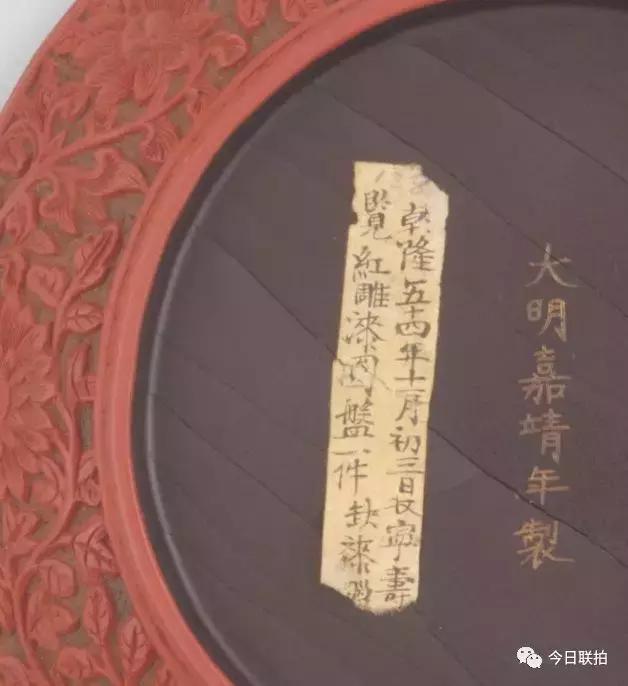 大明嘉靖年製
乾隆五十四年十一月初三日收寧壽
覽紅雕漆盤一件 缺漆
今日联拍